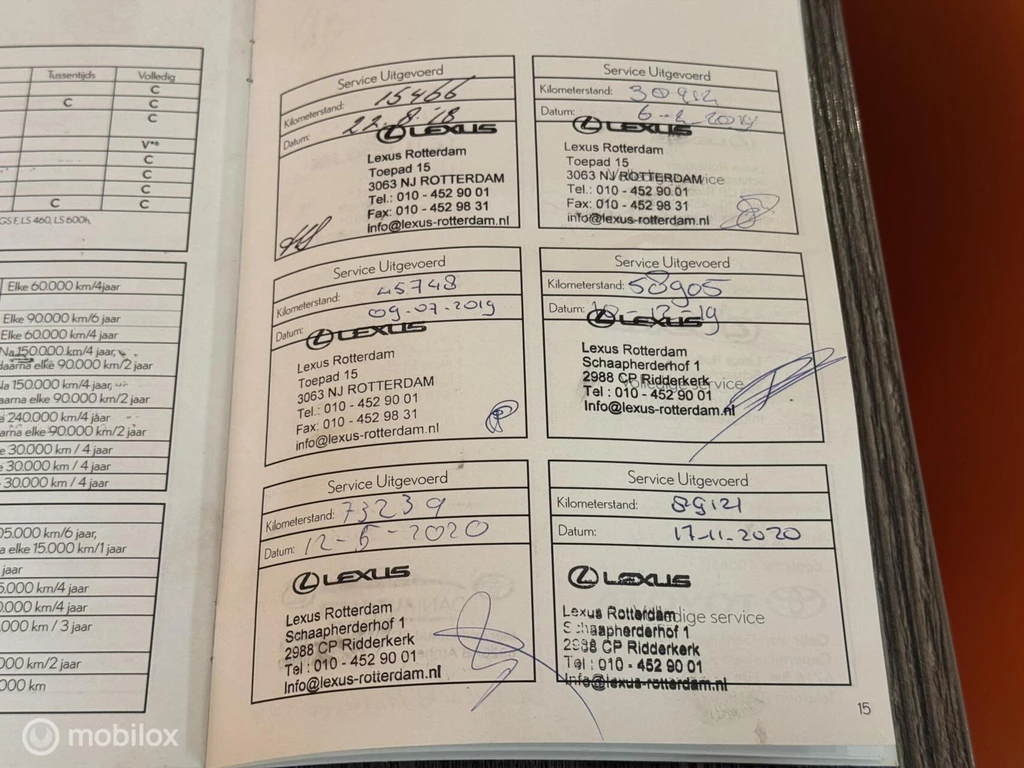 Tussentijds Volledig
C
C C
C
V*⁶
C
C
C
C C
GS F, LS 460, LS 600h,
Elke 60.000 km/4jaar
Elke 90.000 km/6 jaar
Elke 60.000 km/4 jaar
Na 150.000 km/4 jaar,
daarna elke 90.000 km/2 jaar
Na 150.000 km/4 jaar,
elke 90.000 km/2 jaar
240.000 km/4 jaar
elke 90.000 km/2 jaar
30.000 km / 4 jaar
30.000 km / 4 jaar
30.000 km / 4 jaar
km/6 jaar,
elke 15.000 km/1 jaar
jaar
km/4 jaar
km/4 jaar
km / 3 jaar
km/2 jaar
km
Service Uitgevoerd
Kilometerstand: 15466
Datum: 22-8-'18
LEXUS
Lexus Rotterdam
Toepad 15
3063 NJ ROTTERDAM
Tel.: 010 - 452 90 01
Fax: 010 - 452 98 31
Info@lexus-rotterdam.nl
Service Uitgevoerd
Kilometerstand:
Datum: 6-2-2019
LEXUS
Lexus Rotterdam
Toepad 15
3063 NJ ROTTERDAM
service
Tel.: 010 - 452 90 01
Fax: 010 - 452 98 31
info@lexus-rotterdam.nl
Service Uitgevoerd
Kilometerstand: 45748
Datum: 09-07-2019
LEXUS
Lexus Rotterdam
Toepad 15
3063 NJ ROTTERDAM
Tel.: 010 - 452 90 01
Fax: 010 - 452 98 31
info@lexus-rotterdam.nl
Service Uitgevoerd
Kilometerstand: 58905
Datum:
LEXUS
Lexus Rotterdam
Schaapherderhof 1
2988 CP Ridderkerk
Volledige service
Tel : 010 - 452 90 01
Info@lexus-rotterdam.nl
Service Uitgevoerd
Kilometerstand: 73239
Datum: 12-5-2020
LEXUS
Lexus Rotterdam
Schaapherderhof 1
2988 CP Ridderkerk
Tel : 010 - 452 90 01
Info@lexus-rotterdam.nl
Service Uitgevoerd
Kilometerstand: 89121
Datum: 17-11-2020
LEXUS
Lexus Rotterdam
service
Schaapherderhof 1
2988 CP Ridderkerk
Tel : 010 - 452 90 01
Info@lexus-rotterdam.nl
15
mobilox